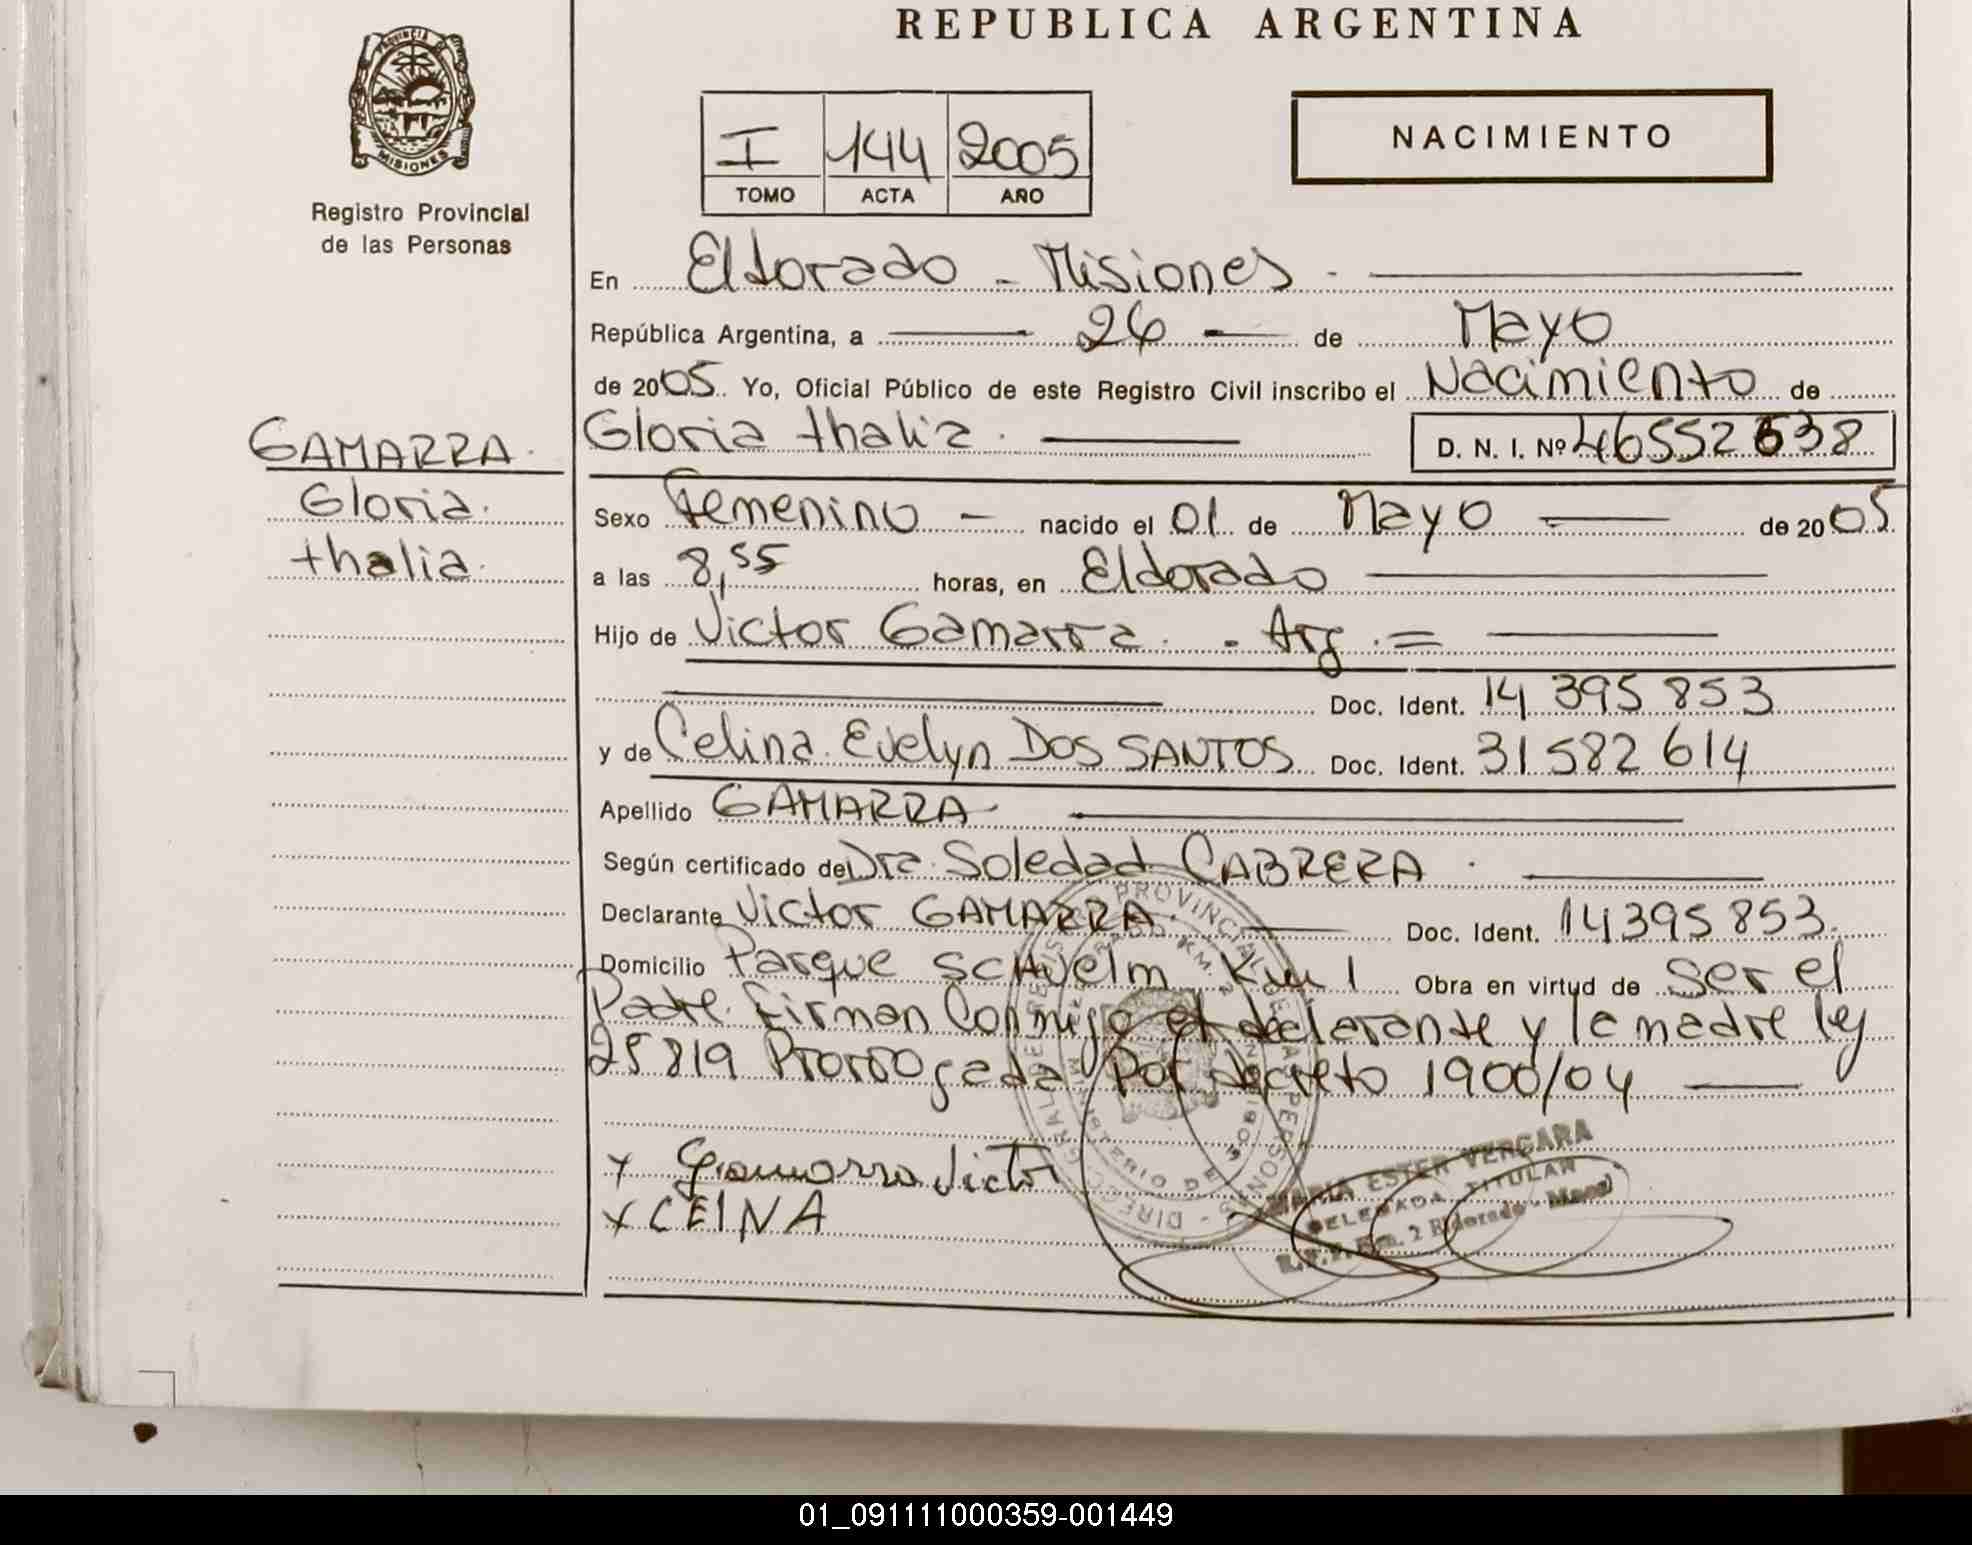 REPUBLICA ARGENTINA
PROVINCIA DE
MISIONES
Registro Provincial
de las Personas
I 144 2005
TOMO ACTA AÑO
NACIMIENTO
En Eldorado - Misiones.
República Argentina, a 26 de Mayo
de 2005. Yo, Oficial Público de este Registro Civil inscribo el Nacimiento de
Gloria thalia. D. N. I. Nº 46552638
GAMARRA.
Gloria.
thalia.
Sexo Femenino - nacido el 01 de Mayo de 2005
a las 8,55 horas, en Eldorado
Hijo de Victor Gamarra. - Arg. =
Doc. Ident. 14 395 853
y de Celina Evelyn DOS SANTOS Doc. Ident. 31 582 614
Apellido GAMARRA
Según certificado de Dra. Soledad CABRERA.
Declarante Victor GAMARRA. Doc. Ident. 14395853.
Domicilio Parque SCHUelm Km 1 Obra en virtud de Ser el
Padre. Firman Conmigo el declarante y la madre ley
25819 Prorrogada Por decreto 1900/04
x Gamarra Victor
x CEINA
MARIA ESTER VERGARA
DELEGADA TITULAR
Km. 2 Eldorado - Mnes
01_091111000359-001449